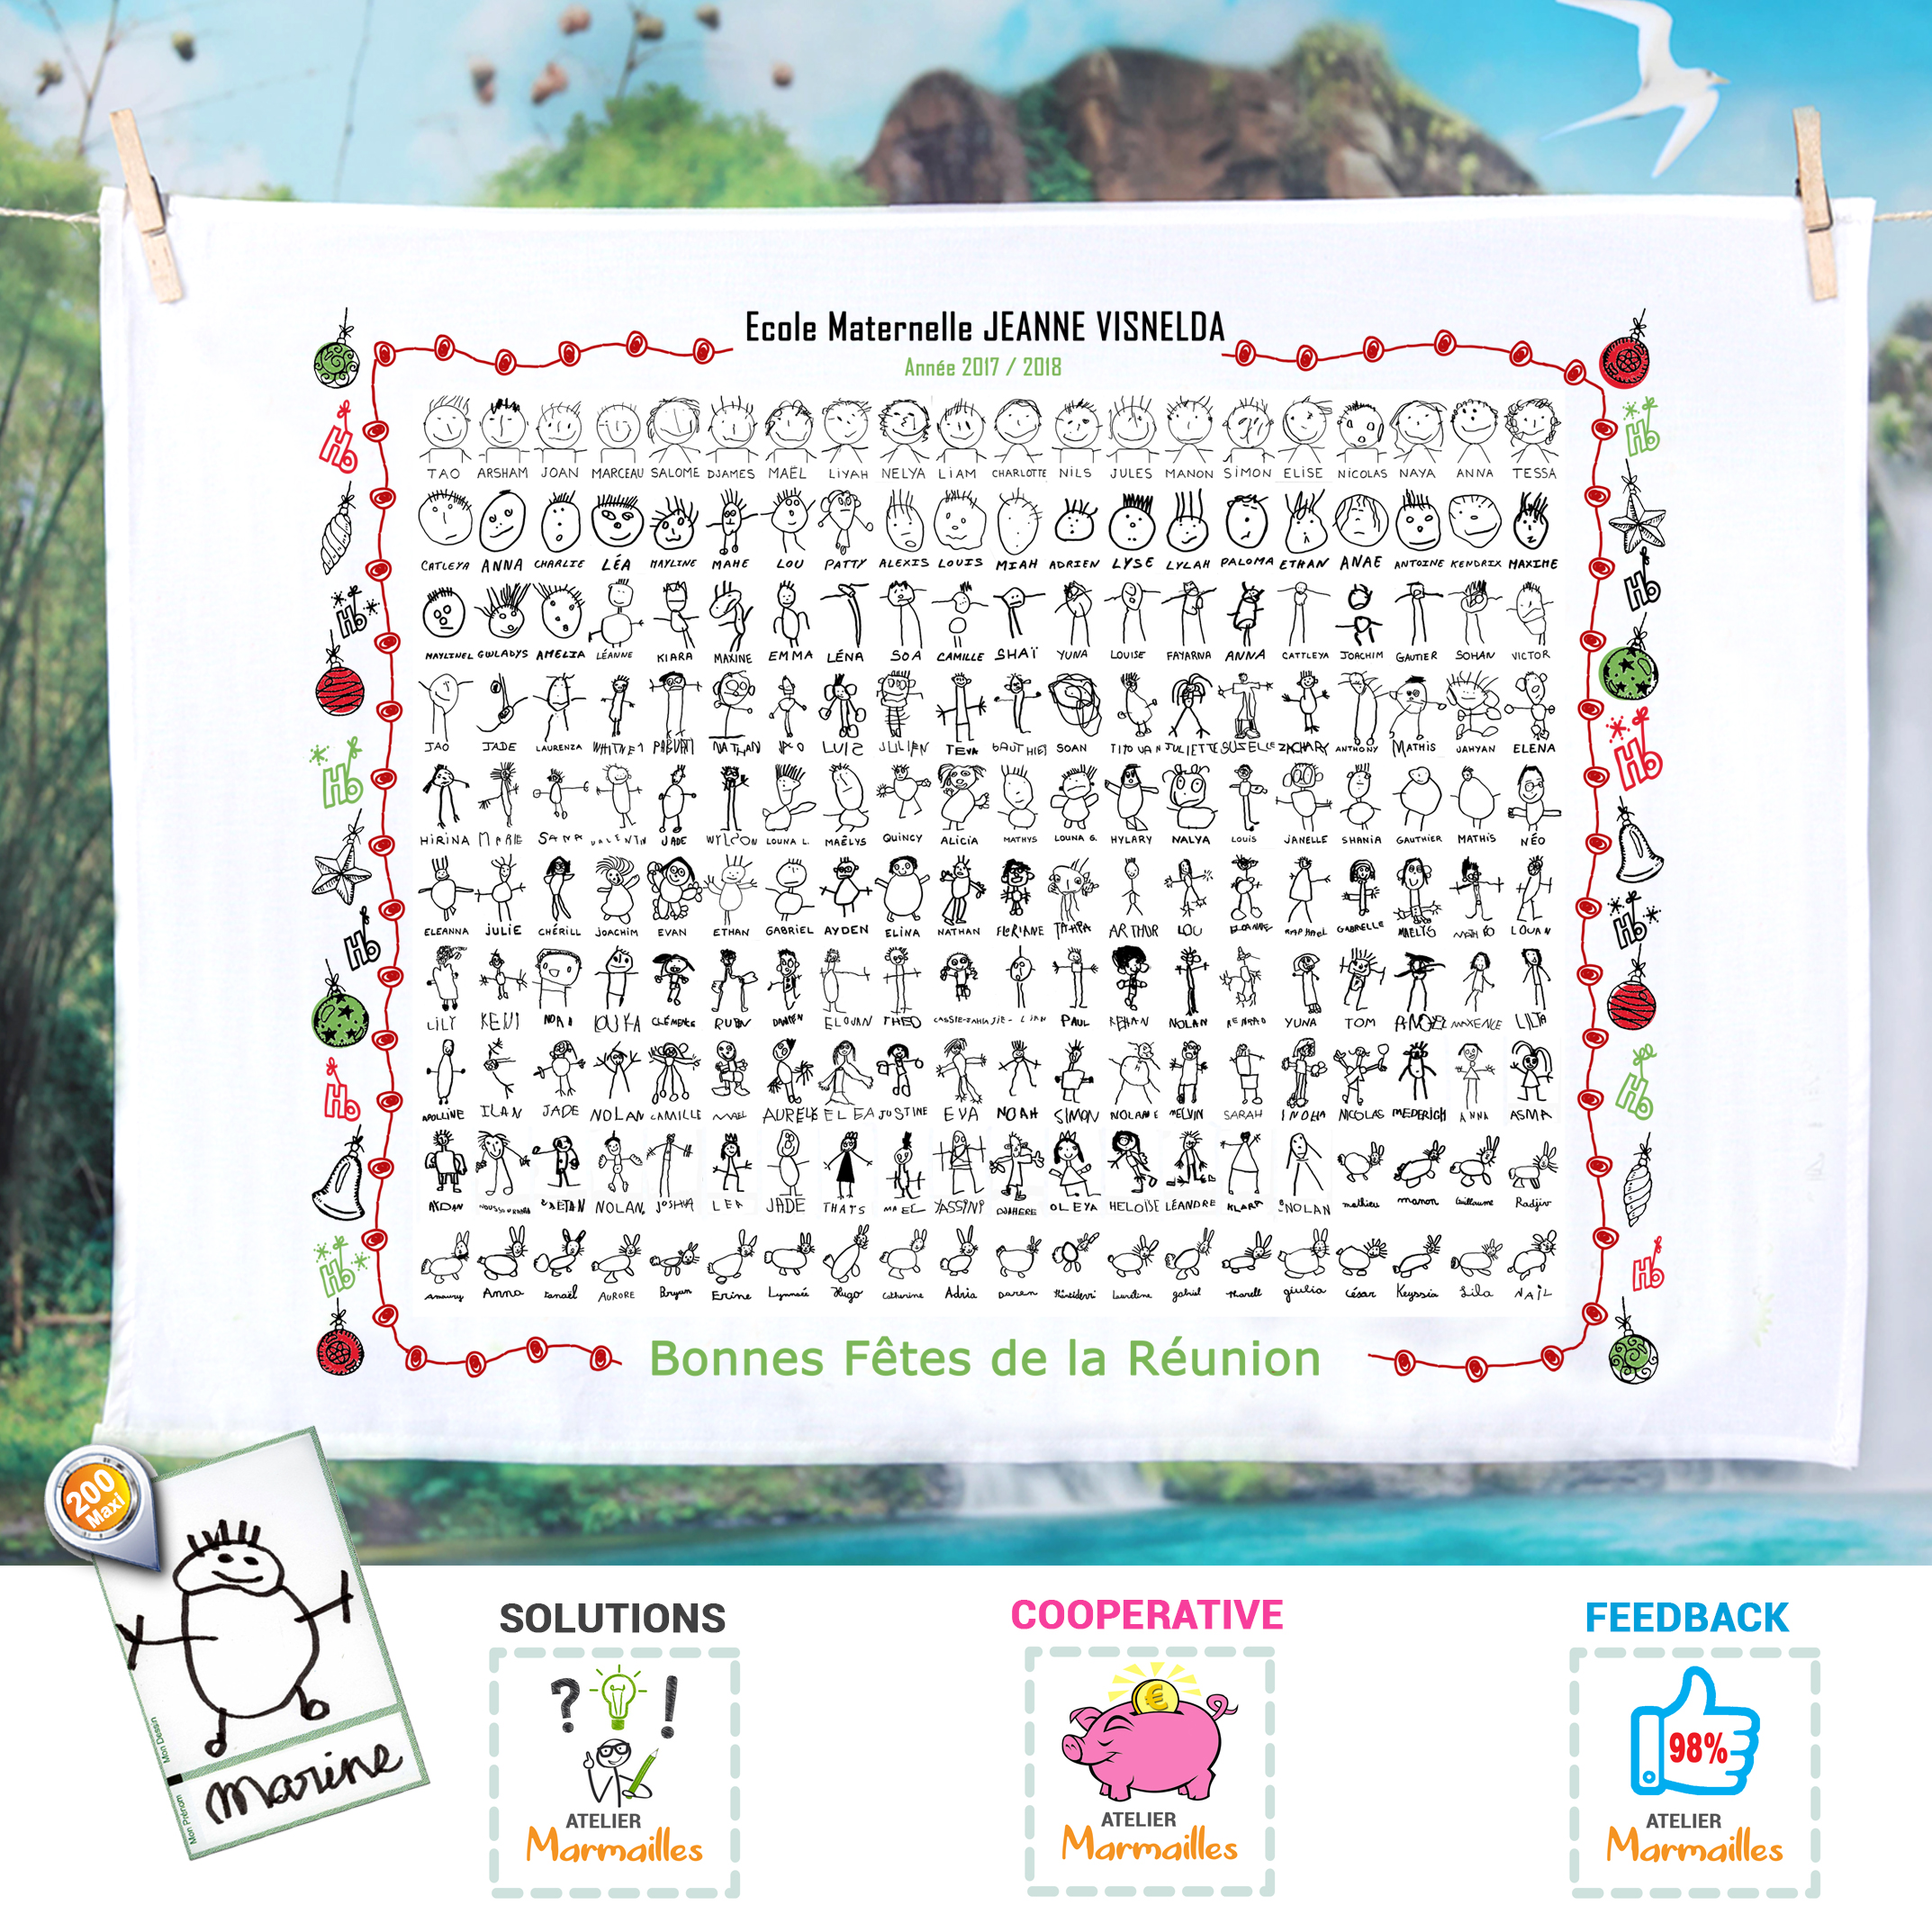 Ecole Maternelle JEANNE VISNELDA
Année 2017 / 2018
TAO ARSHAM JOAN MARCEAU SALOME DJAMES MAËL LiYAH NELYA LiAM CHARLOTTE NiLS JULES MANON SiMON ELiSE NiCOLAS NAYA ANNA TESSA
CATLEYA ANNA CHARLIE LÉA MAYLINE MAHE LOU PATTY ALEXIS LOUIS MIAH ADRIEN LYSE LYLAH PALOMA ETHAN ANAE ANTOINE KENDRIX MAXIME
MAYLINEL GWLADYS AMELIA LÉANNE KIARA MAXINE EMMA LÉNA SOA CAMILLE SHAÏ YUNA LOUISE FAYARNA ANNA CATTLEYA JOACHIM GAUTIER SOHAN VICTOR
JAO JADE LAURENZA NATHAN JULIEN TEVA SOAN JULIETTE ZACHARY ANTHONY MATHiS JAHYAN ELENA
HiRiNA MARIE JADE LOUNA L. MAËLYS QUINCY ALiCiA MATHYS LOUNA G. HYLARY NALYA LOUiS JANELLE SHANiA GAUTHiER MATHiS NÉO
ELEANNA JULIE CHÉRILL JOACHIM EVAN ETHAN GABRIEL AYDEN ELiNA NATHAN FLORIANE ARTHUR LOU GABRIELLE LOUAN
LiLY CLÉMENCE ELOUAN THEO PAUL NOLAN YUNA TOM MAXENCE
APOLLiNE ILAN JADE NOLAN CAMILLE JUSTINE EVA NOAH SIMON MELVIN SARAH NICOLAS MEDERICH ANNA ASMA
NOLAN JOSHUA LEA JADE YASSINE HELOÏSE LÉANDRE NOLAN mathieu manon Guillaume Radjiv
Amaury Anna AURORE Bryan Erine Lynnaée Hugo Catherine Adria Daren gabriel giulia César Keyssia Lila NAÏL
Hb
Hb
Hb
Hb
Hb
Hb
Hb
Hb
Hb
Hb
Hb
Hb
Bonnes Fêtes de la Réunion
200
Maxi
Mon Dessin
Mon Prénom
Marine
SOLUTIONS
? !
ATELIER
Marmailles
COOPERATIVE
€
ATELIER
Marmailles
FEEDBACK
98%
ATELIER
Marmailles